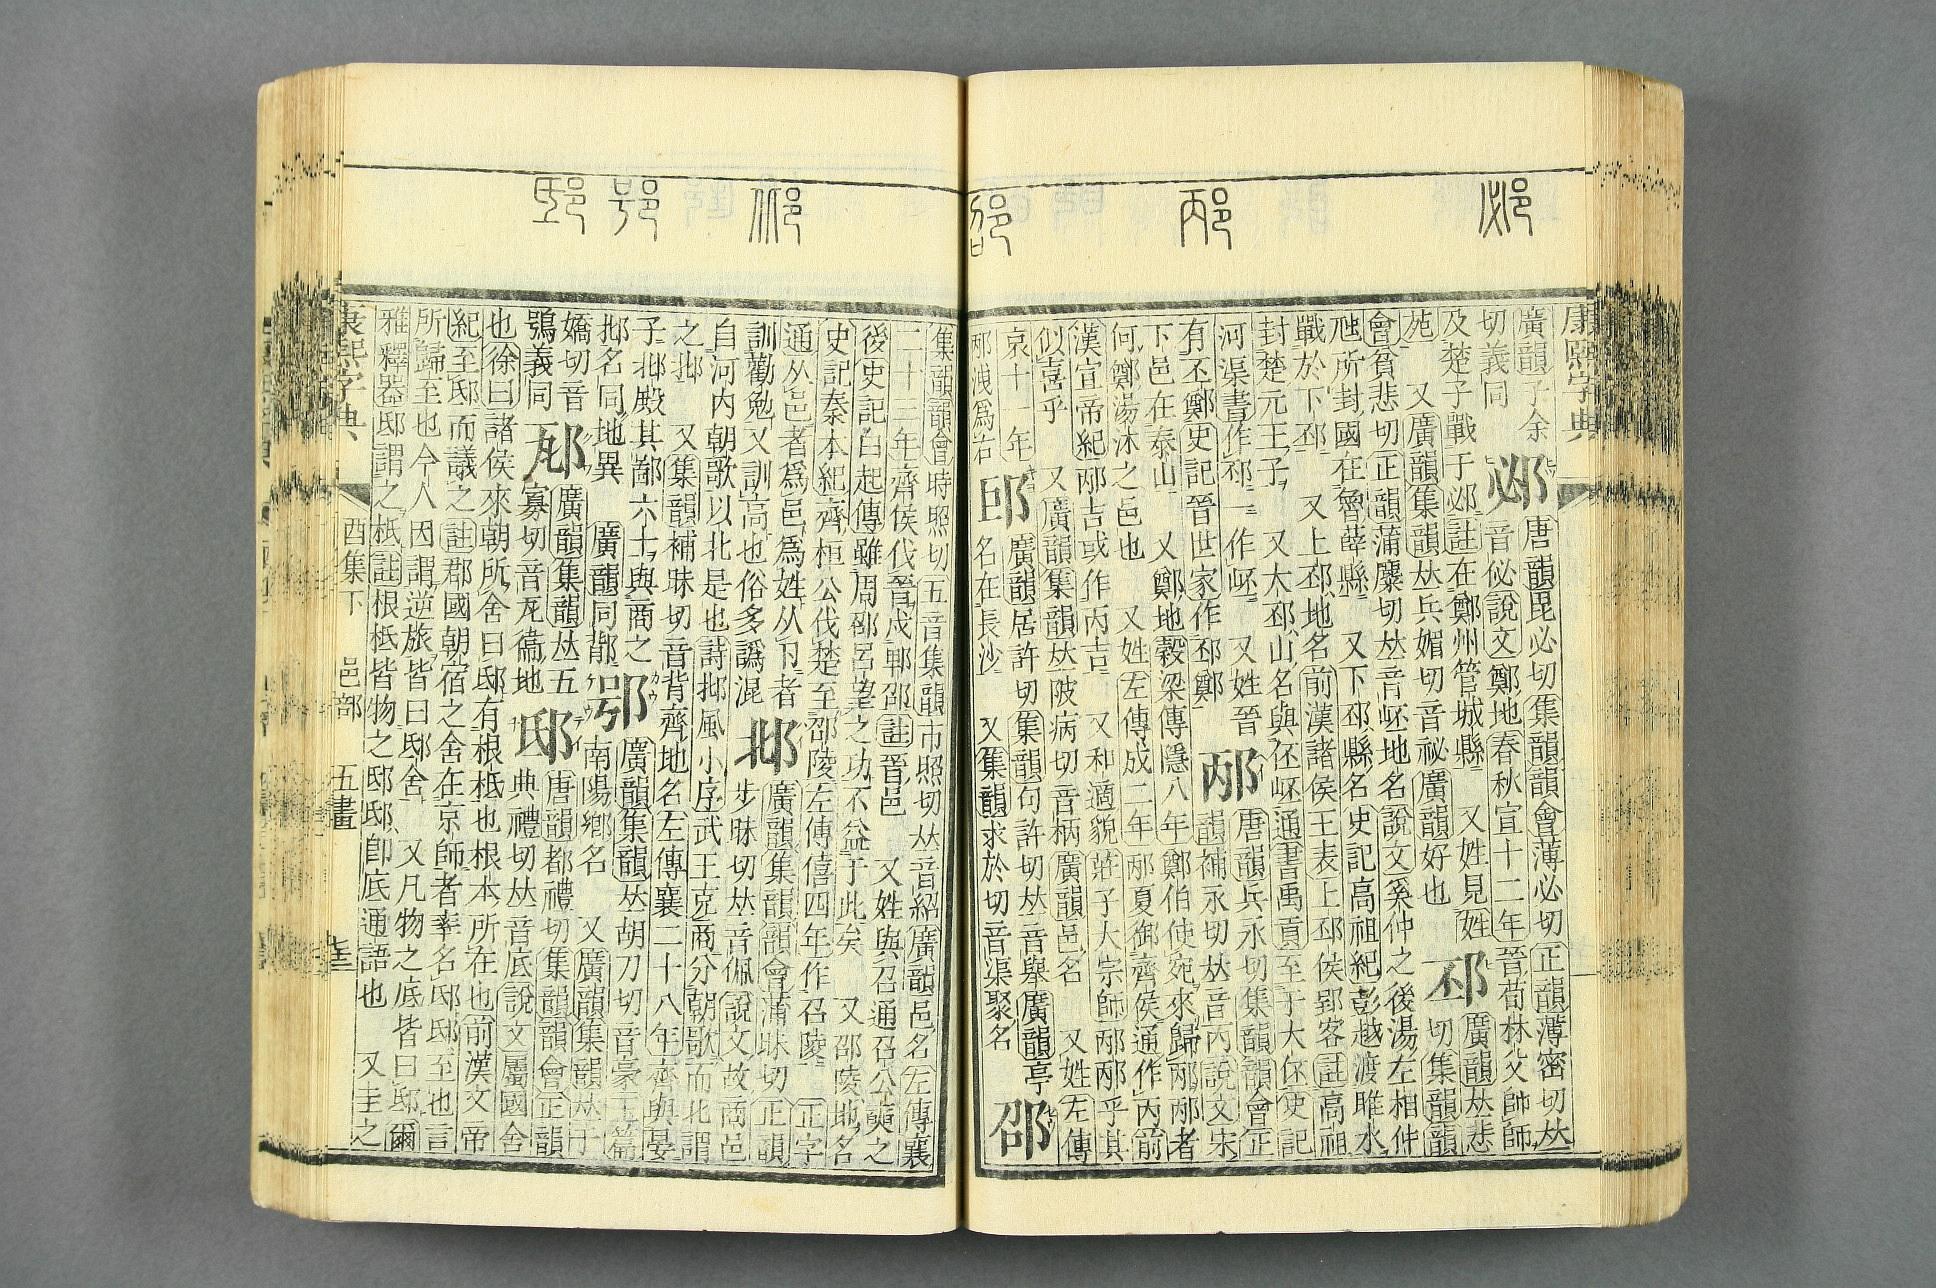 康熙字典
廣韻子余
切義同
邲
唐韻毘必切集韻韻會薄必切正韻薄密切𠀤
音佖說文鄭地春秋宣十二年晉荀林父帥師
及楚子戰于邲註在鄭州管城縣 又姓見姓
苑 又廣韻集韻𠀤兵媚切音祕廣韻好也
邳
廣韻𠀤悲
切集韻韻
會貧悲切正韻蒲麋切𠀤音岯地名說文奚仲之後湯左相仲
虺所封國在魯薛縣 又下邳縣名史記高祖紀彭越渡睢水
戰於下邳 又上邳地名前漢諸侯王表上邳侯郢客註高祖
封楚元王子 又大邳山名與伾岯通書禹貢至于大伾史記
河渠書作邳一作岯 又姓晉
有丕鄭史記晉世家作邳鄭
邴
唐韻兵永切集韻韻會正
韻補永切𠀤音丙說文宋
下邑在泰山 又鄭地穀梁傳隱八年鄭伯使宛來歸邴邴者
何鄭湯沐之邑也 又姓左傳成二年邴夏御齊侯通作丙前
漢宣帝紀邴吉或作丙吉 又和適貌莊子大宗師邴邴乎其
似喜乎 又廣韻集韻𠀤陂病切音柄廣韻邑名 又姓左傳
哀十一年
邴洩爲右
𨙵
廣韻居許切集韻句許切𠀤音舉廣韻亭
名在長沙 又集韻求於切音渠聚名
邵
集韻韻會時照切五音集韻市照切𠀤音紹廣韻邑名左傳襄
二十三年齊侯伐晉戍郫邵註晉邑 又姓與召通召公奭之
後史記白起傳雖周邵呂望之功不益于此矣 又邵陵地名
史記秦本紀齊桓公伐楚至邵陵左傳僖四年作召陵 正字
通从邑者爲邑爲姓从卩者
訓勸勉又訓高也俗多譌混
邶
廣韻集韻韻會蒲昧切正韻
步昧切𠀤音佩說文故商邑
自河內朝歌以北是也詩邶風小序武王克商分朝歌而北謂
之邶 又集韻補昧切音背齊地名左傳襄二十八年齊與晏
子邶殿其鄙六十與商之
邶名同地異
廣韻同郻
号邑
廣韻集韻𠀤胡刀切音豪玉篇
南陽鄉名 又廣韻集韻𠀤于
嬌切音
鴞義同
邷
廣韻集韻𠀤五
寡切音瓦衞地
邸
唐韻都禮切集韻韻會正韻
典禮切𠀤音底說文屬國舍
也徐曰諸侯來朝所舍曰邸有根柢也根本所在也前漢文帝
紀至邸而議之註郡國朝宿之舍在京師者率名邸邸至也言
所歸至也今人因謂逆旅皆曰邸舍 又凡物之底皆曰邸爾
雅釋器邸謂之柢註根柢皆物之邸邸卽底通語也 又圭之
康熙字典
酉集下
邑部
五畫